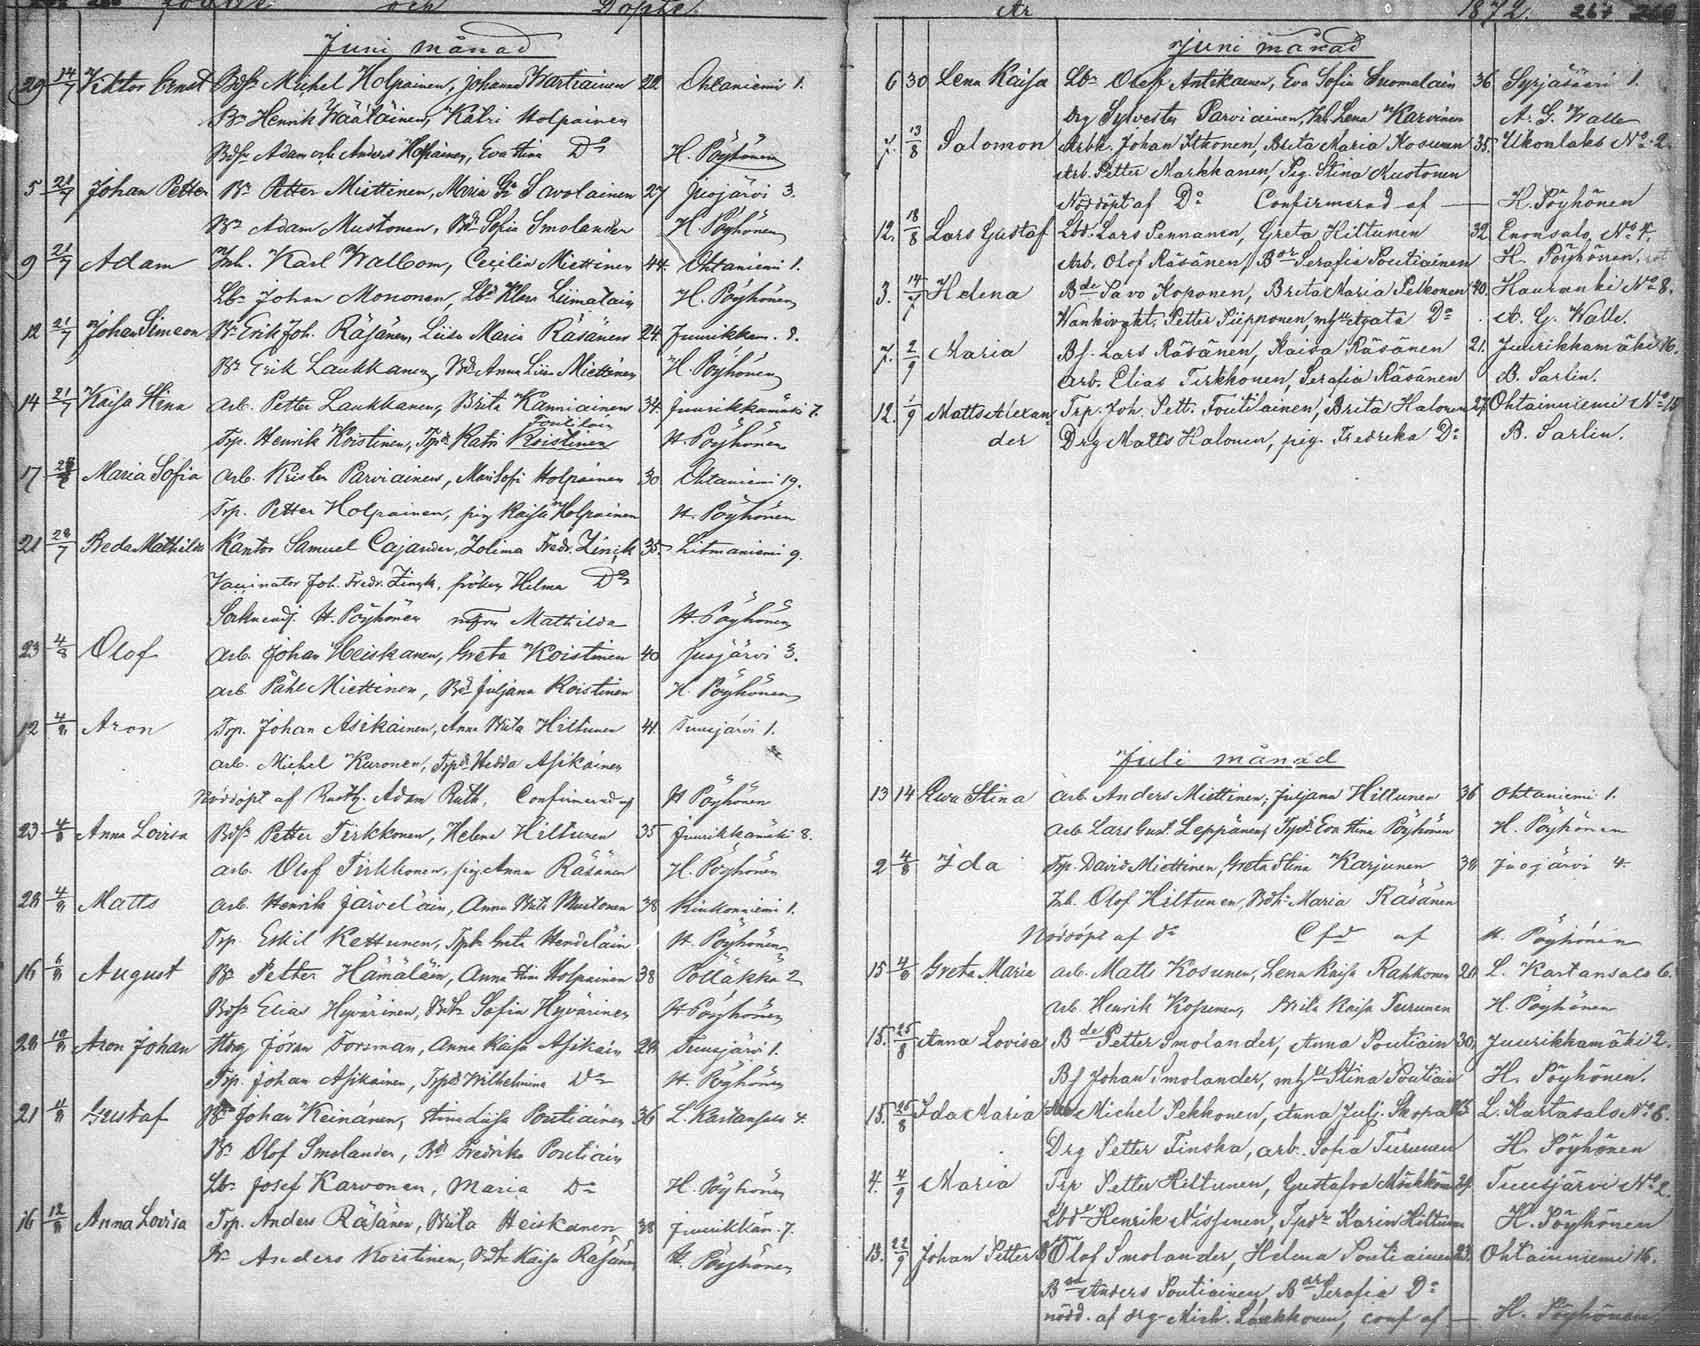 Födde och Döpte
Juni månad
29 14/7 Viktor Ernst Bdsn Michel Holpainen, Johanna Wartiainen 22 Ohtaniemi 1.
Bn Henrik Wäätäinen, Katri Holpainen
Bdsn Adam och Anders Holpainen, Eva Stina Do H. Pöyhönen
5 21/7 Johan Petter Bn Petter Miettinen, Maria Gr Sawolainen 27 Juojärvi 3.
Bn Adam Mustonen, Bdr Sofia Smolander H. Pöyhönen
9 21/7 Adam Inh. Karl Walbom, Cecilia Miettinen 44. Ohtaniemi 1.
Lbn Johan Mononen, Lbr Klara Liimatain H. Pöyhönen
12 21/7 Johan Simeon Bn Erik Joh. Räsänen, Liisa Maria Räsänen 24. Juurikkam. 8.
Bn Erik Laukkanen, Bdr Anna Liisa Miettinen H. Pöyhönen
14 21/7 Kaisa Stina Arb. Petter Laukkanen, Brita Kanniainen 34. Juurikkamäki 7.
Trp. Henrik Koistinen, Trpr Katri Koistinen H. Pöyhönen
17 Maria Sofia Arb. Krister Parviainen, Mari Sofi Holpainen 30 Ohtaniemi 19.
Trp. Petter Holpainen, pig Kaisa Holpainen H. Pöyhönen
21 28/7 Beda Mathilda Kantor Samuel Cajander, Zolima Fredr. Zinck 35. Litmaniemi 9.
Vaccinator Joh. Fredr. Zinck, fröken Helma Do
Sockneadj. H. Pöyhönen Mathilda H. Pöyhönen
23 4/8 Olof Arb. Johan Heiskanen, Greta Koistinen 40 Juojärvi 3.
Arb Påhl Miettinen, Bdr Juljana Koistinen H. Pöyhönen
12 4/8 Aron Trp. Johan Asikainen, Anna Brita Hiltunen 41. Tuusjärvi 1.
Arb. Michel Kuronen, Trpr Hedda Asikainen
Nöddöpt af Adam Ruth, Confirmerad af H Pöyhönen
23 4/8 Anna Lovisa Bdsn Petter Tirkkonen, Helena Hiltunen 35 Juurikkamäki 8.
Arb. Olof Tirkkonen, pig. Anna Räsänen H. Pöyhönen
28 4/8 Matts Arb. Henrik Järveläin, Anna Brita Mustonen 38 Kinkonniemi 1.
Trp. Eskil Kettunen, Trph Greta Hendeläin H. Pöyhönen
16 6/8 August Bn Petter Hämäläin, Anna Stina Holpainen 38 Pöllakkä 2
Bdsn Elias Hyvärinen, Bdr Sofia Hyvärinen H Pöyhönen
28 10/8 Aron Johan Göran Forsman, Anna Kaisa Asikain 28 Tuusjärvi 1.
Trp. Johan Asikainen, Trpd Wilhelmina Do H. Pöyhönen
21 11/8 Gustaf Bn Johan Keinänen, Anna Liisa Poutiainen 36 L. Kartansalo 4.
Bn Olof Smolander, Bd Fredrika Poutiain
Lbn Josef Karvonen, Maria Do H. Pöyhönen
16 12/8 Anna Lovisa Trp. Anders Räsänen, Brita Heiskanen 38 Juurikkam. 7.
Bn Anders Koistinen, Bdr Kaisa Räsänen H. Pöyhönen
År 1872. 267
Juni månad
6 30 Lena Kaisa Lbn Olof Antikainen, Eva Sofia Suomalain 36 Syrjäsaari 1.
Drg Sylvester Parviainen, Inh. Lena Karvinen A. G. Walle
7. 13/8 Salomon Arbk. Johan Itkonen, Brita Maria Kosunen 35. Ukonlaks No 2.
Arb. Petter Markkanen, Pig. Stina Kuotonen
Nöddöpt af Do Confirmerad af — H. Pöyhönen
12. 18/8 Lars Gustaf Lbd. Lars Pennanen, Greta Hiltunen 32. Enonsalo No 4.
Arb. Olof Räsänen, Bor Serafia Poutiainen H. Pöyhönen.
3. 14/7 Helena Bde Pavo Koponen, Brita Maria Pelkonen 40. Kauranki No 8.
Wankivakt. Petter Piipponen, Agata Do A. G. Walle.
7. 2/9 Maria Bf. Lars Räsänen, Kaisa Räsänen 21. Juurikkamäki 16.
Arb. Elias Tirkkonen, Serafia Räsänen B. Sarlin.
12. 1/9 Matts Alexander Trp. Joh. Pett. Toutilainen, Brita Halonen 27 Ohtainniemi No 15
Drg Matts Halonen, pig. Fredrika Do B. Sarlin.
Juli månad
13 14 Eva Stina Arb. Anders Miettinen, Juljana Hiltunen 36 Ohtaniemi 1.
Arb. Lars Gust. Leppänen, Trpdr Eva Stina Pöyhönen H. Pöyhönen
2 4/8 Ida Trp. David Miettinen, Greta Stina Karjunen 38 Juojärvi 4.
Inh. Olof Hiltunen, Bdh. Maria Räsänen
Nöddöpt af do Cfd af H. Pöyhönen
15 4/8 Greta Maria Arb. Matts Kosunen, Lena Kaisa Rahkonen 28 L. Kartansalo 6.
Arb. Henrik Kosunen, Brita Kaisa Turunen H. Pöyhönen
15. 25/8 Anna Lovisa Bde Petter Smolander, Anna Poutiain 30. Juurikkamäki 2.
Bf Johan Smolander, Stina Poutiain H. Pöyhönen.
15. 25/8 Ida Maria Michel Pekkonen, Anna Julj. Skopa L. Kartasalo No 6.
Drg Petter Finska, arb. Sofia Turunen H. Pöyhönen
4. 4/9 Maria Trp Petter Hiltunen, Gustafva 29. Tuusjärvi No 2.
Lbde Henrik Nissinen, Tpdr Karin Hiltunen H. Pöyhönen
13. 22/9 Johan Petter Olof Smolander, Helena Poutiainen 23. Ohtainniemi 16.
Bde Anders Poutiainen, Bor Serafia Do
nödd. af drg Mich. Laukkonen, conf af — H. Pöyhönen.